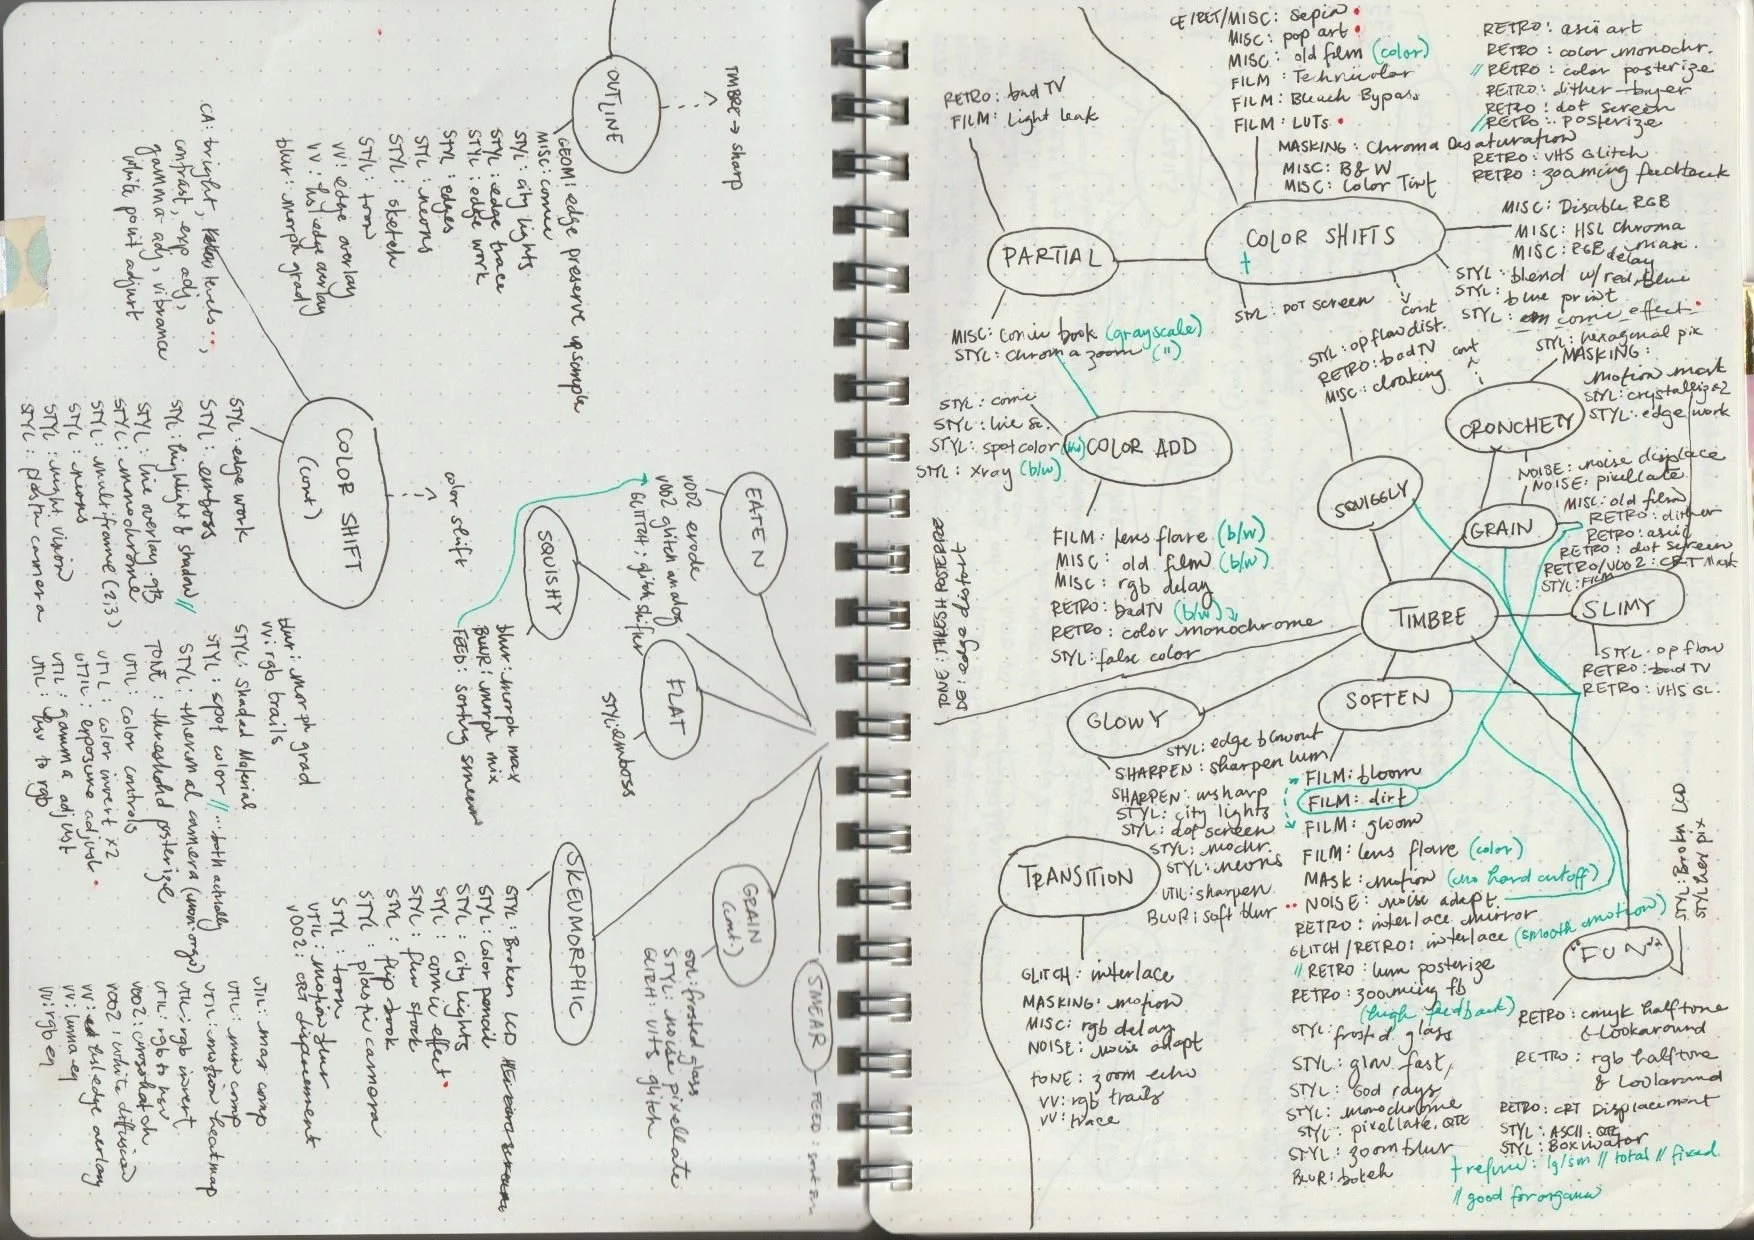 TIMBRE → sharp
OUTLINE
GEOM: edge preserve upsample
MISC: comic
STYL: city lights
STYL: edge trace
STYL: edge work
STYL: edges
STYL: neons
STYL: sketch
STYL: toon
VV: edge overlay
VV: hsl edge overlay
blur: morph grad
CA: bright, levels,
contrast, exp adj,
gamma adj, vibrance
white point adjust
COLOR SHIFT
(cont)
color shift
STYL: edge work
STYL: emboss
STYL: highlight & shadow //
STYL: line overlay.qtz
STYL: monochrome
STYL: multiframe (2;3)
STYL: neons
STYL: night vision
STYL: plastic camera
blur: morph grad
VV: rgb trails
STYL: Shaded Material
STYL: spot color // ... both actually
STYL: thermal camera (mon: orgo)
TONE: threshold posterize
UTIL: color controls
UTIL: color invert x2
UTIL: exposure adjust
UTIL: gamma adjust
UTIL: hsv to rgb
UTIL: max comp
UTIL: min comp
UTIL: motion heatmap
UTIL: rgb invert
UTIL: rgb to hsv
V002: crosshatch
V002: white diffusion
VV: hsl edge overlay
VV: luma eq
VV: rgb eq
EATEN
V002 erode
V002 glitch analog
GLITCH: glitch shifter
SQUISHY
blur: morph max
BLUR: morph mix
FEED: sorting smear
FLAT
STYL: emboss
SKEUMORPHIC
STYL: Broken LCD
STYL: color pencil
STYL: city lights
STYL: comic effect
STYL: flux spook
STYL: flip book
STYL: plastic camera
STYL: toon
UTIL: motion blur
V002: CRT displacement
GRAIN
(cont.)
STYL: frosted glass
STYL: noise pixellate
GLITCH: VHS glitch
SMEAR
FEED: sort sm
RETRO: bad TV
FILM: Light leak
PARTIAL
MISC: comic book (grayscale)
STYL: chroma zoom (")
CE/RET/MISC: sepia
MISC: pop art
MISC: old film (color)
FILM: Technicolor
FILM: Bleach Bypass
FILM: LUTs
MASKING: Chroma Desaturation
MISC: B&W
MISC: Color Tint
RETRO: ascii art
RETRO: color monochr.
// RETRO: color posterize
RETRO: dither - bayer
RETRO: dot screen
// RETRO: posterize
RETRO: VHS Glitch
RETRO: zooming feedback
COLOR SHIFTS
†
MISC: Disable RGB
MISC: HSL chroma
MISC: RGB delay
STYL: blend w/ red, blue
STYL: blue print
STYL: comic effect
STYL: DOT screen
cont
STYL: hexagonal pix
MASKING:
motion mask
STYL: crystallize 2
STYL: edge work
CRONCHETY
cont
STYL: op flow dist.
RETRO: bad TV
MISC: cloaking
SQUIGGLY
STYL: comic
STYL: line sc.
STYL: spotcolor (bw)
STYL: xray (b/w)
COLOR ADD
FILM: lens flare (b/w)
MISC: old film (b/w)
MISC: rgb delay
RETRO: bad TV (b/w)
RETRO: color monochrome
STYL: false color
NOISE: noise displace
NOISE: pixellate
MISC: old film
RETRO: dither
RETRO: ascii
RETRO: dot screen
RETRO/V002: CRT Mask
STYL: FILM
GRAIN
TIMBRE
SLIMY
STYL: op flow
RETRO: bad TV
RETRO: VHS GL.
TONE: THRESH POSTERIZE
DB: edge distort
GLOWY
STYL: edge blowout
SHARPEN: sharpen lum
SHARPEN: unsharp
STYL: city lights
STYL: dot screen
STYL: mochr.
STYL: neons
UTIL: sharpen
BLUR: soft blur
SOFTEN
FILM: bloom
FILM: dirt
FILM: gloom
FILM: lens flare (color)
MASK: motion (no hard cutoff)
NOISE: noise adapt.
RETRO: interlace mirror
GLITCH/RETRO: interlace (smooth motion)
// RETRO: lum posterize
RETRO: zooming fb
(high feedback)
STYL: frosted glass
STYL: glow fast
STYL: God rays
STYL: monochrome
STYL: pixellate.QTZ
STYL: zoom blur
BLUR: bokeh
TRANSITION
GLITCH: interlace
MASKING: motion
MISC: rgb delay
NOISE: noise adapt
TONE: zoom echo
VV: rgb trails
VV: trace
STYL: Broken LCD
STYL: hex pix
"FUN"
RETRO: cmyk halftone
& lookaround
RETRO: rgb halftone
& lookaround
RETRO: CRT Displacement
STYL: ASCII.QTZ
STYL: Boxinator
† refine: lg/sm // total // fixed
// good for organic